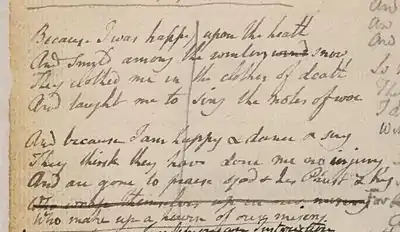 Because I was happy upon the heath
And smil'd among the winters wind snow
They clothed me in the clothes of death
And taught me to sing the notes of woe
And because I am happy & dance & sing
They think they have done me no injury
And are gone to praise God & his Priest & King
Who wrap themselves up in our misery
Who make up a heaven of our misery